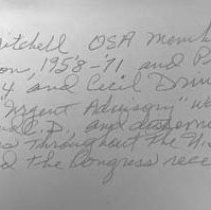 itchell OSA Memb
on, 1958-'71 and P
4 and Cecil Drin
"Urgent Advisory" w
C.D., and
s throughout the U.S.
d the Congress rece